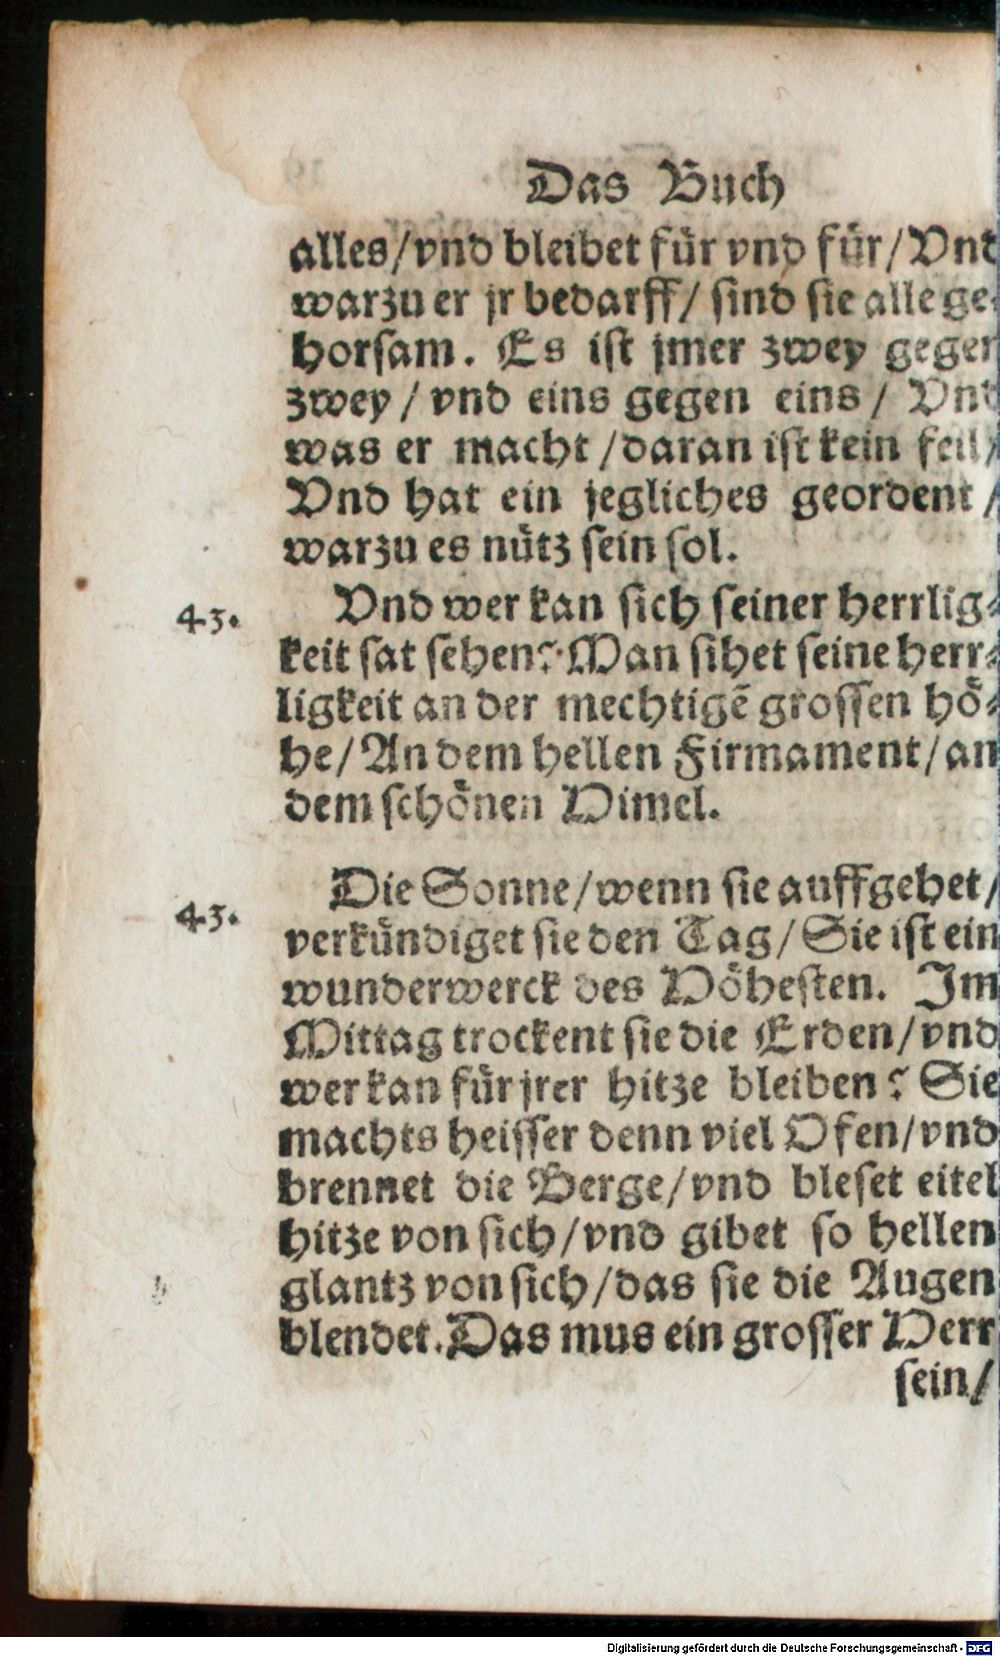 Das Buch
alles/vnd bleibet für vnd für/Vnd
warzu er jr bedarff/ sind sie alle ge-
horsam. Es ist jmer zwey gegen
zwey / vnd eins gegen eins / Vnd
was er macht /daran ist kein feil/
Vnd hat ein jegliches geordent /
warzu es nütz sein sol.
43. Vnd wer kan sich seiner herrlig-
keit sat sehen? Man sihet seine herr-
ligkeit an der mechtigẽ grossen hö-
he/An dem hellen Firmament/an
dem schönen Himel.
43. Die Sonne/wenn sie auffgehet/
verkündiget sie den Tag/Sie ist ein
wunderwerck des Höhesten. Im
Mittag trockent sie die Erden/vnd
wer kan für jrer hitze bleiben? Sie
machts heisser denn viel Ofen/vnd
brennet die Berge/vnd bleset eitel
hitze von sich/vnd gibet so hellen
glantz von sich/das sie die Augen
blendet. Das mus ein grosser Herr
sein/
Digitalisierung gefördert durch die Deutsche Forschungsgemeinschaft - DFG